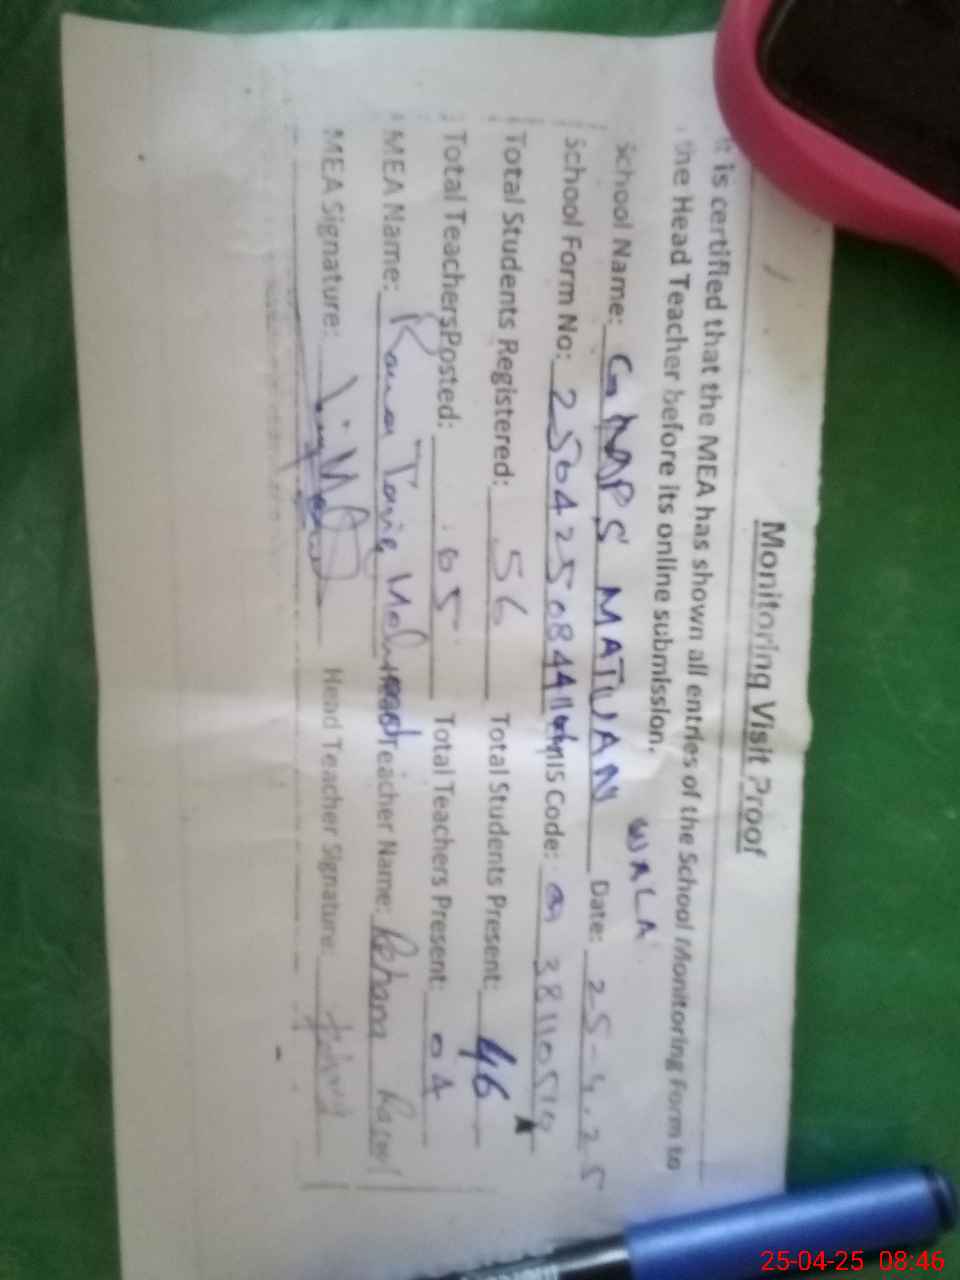 Monitoring Visit Proof
It is certified that the MEA has shown all entries of the School Monitoring Form to
the Head Teacher before its online submission.
School Name: GMPS MATUAN WALA Date: 25-4.25
School Form No: Code:
Total Students Registered: 56 Total Students Present: 46
Total TeachersPosted: 05 Total Teachers Present: 04
MEA Name: Rana Tariq Teacher Name: Rehana
MEA Signature: Head Teacher Signature:
25-04-25 08:46